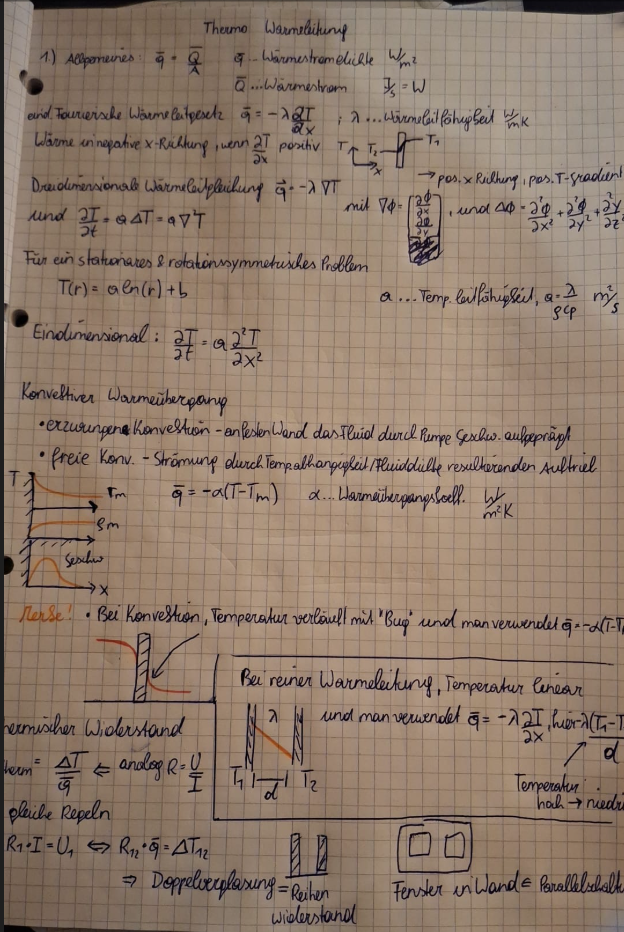 Thermo Wärmeleitung
1.) Allgemeines: q̄ = Q̄/A   q̄ ... Wärmestromdichte W/m²
Q̄ ... Wärmestrom J/s = W
eind. Fouriersche Wärmeleitgesetz q̄ = -λ ∂T/∂x ; λ ... Wärmeleitfähigkeit W/mK
Wärme in negative x-Richtung, wenn ∂T/∂x positiv   T   T₂   T₁   x
→ pos. x Richtung, pos. T-gradient
Dreidimensionale Wärmeleitgleichung q̄ = -λ ∇T
und ∂T/∂t = a ΔT = a ∇²T   mit ∇Φ = [∂Φ/∂x ∂Φ/∂y], und ΔΦ = ∂²Φ/∂x² + ∂²Φ/∂y² + ∂²y/∂z²
Für ein stationäres & rotationssymmetrisches Problem
T(r) = a ln(r) + b   a ... Temp. leitfähigkeit, a = λ/ρcp m²/s
Eindimensional: ∂T/∂t = a ∂²T/∂x²
Konvektiver Wärmeübergang
• erzwungene Konvektion - an festen Wand das Fluid durch Pumpe Geschw. aufgeprägt
• freie Konv. - Strömung durch Tempabhängigkeit/Fluiddichte resultierenden Auftrieb
T   Tm   q̄ = -α(T-Tm)   α ... Wärmeübergangskoeff. W/m²K
ρm
Geschw
x
Merke! • Bei Konvektion, Temperatur verläuft mit "Bug" und man verwendet q̄ = -α(T-T
Bei reiner Wärmeleitung, Temperatur linear
λ   und man verwendet q̄ = -λ ∂T/∂x, hier -λ(T₁-T /d
T₁   d   T₂
Temperatur
hoh → niedri
hermischer Widerstand
herm = ΔT/q̄ ⇐ analog R = U/I
gleiche Regeln
R₁·I = U₁ ⇔ R₁₂·q̄ = ΔT₁₂
⇒ Doppelverglasung = Reihen
widerstand
Fenster in Wand ∈ Parallelschalt